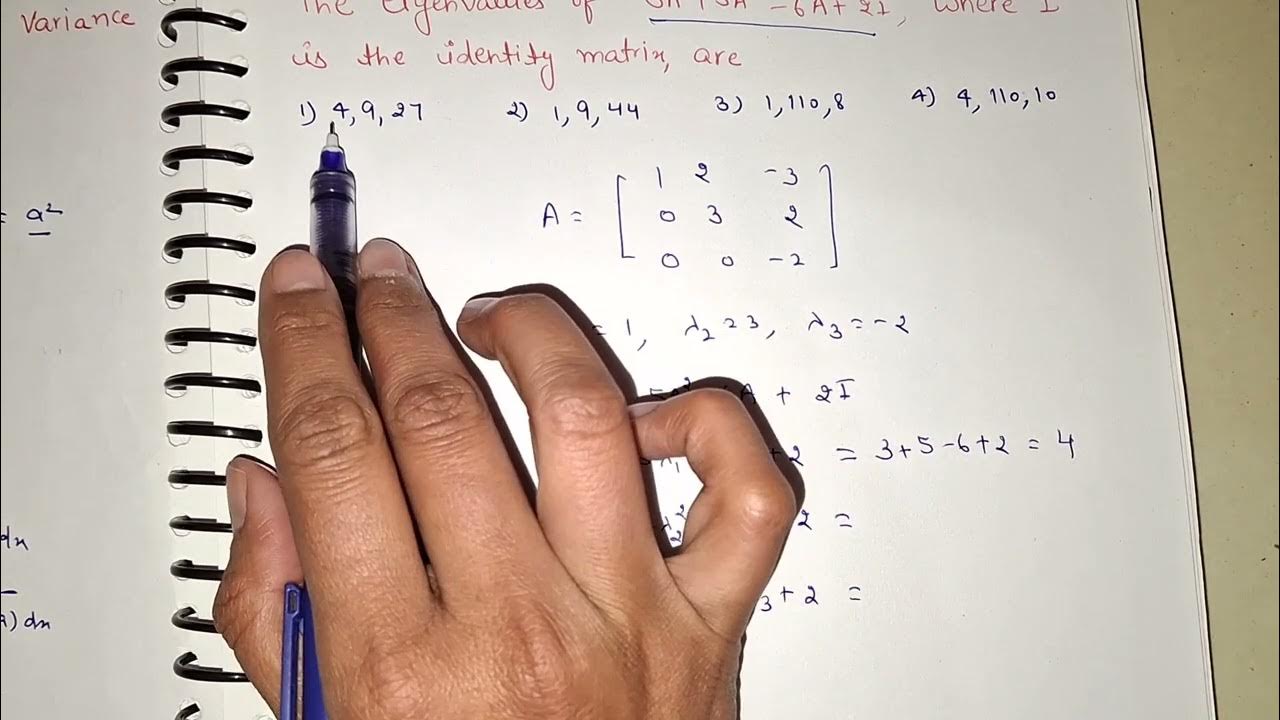 Variance
= a²
dx
) dx
The Eigenvalues of 3A³+5A²-6A+2I, where I
is the identity matrix, are
1) 4, 9, 27 2) 1, 9, 44 3) 1, 110, 8 4) 4, 110, 10
A = [ 1 2 -3
0 3 2
0 0 -2 ]
= 1, λ₂ = 3, λ₃ = -2
5A² A + 2I
+2 = 3+5-6+2 = 4
λ₂² 2 =
₃ + 2 =